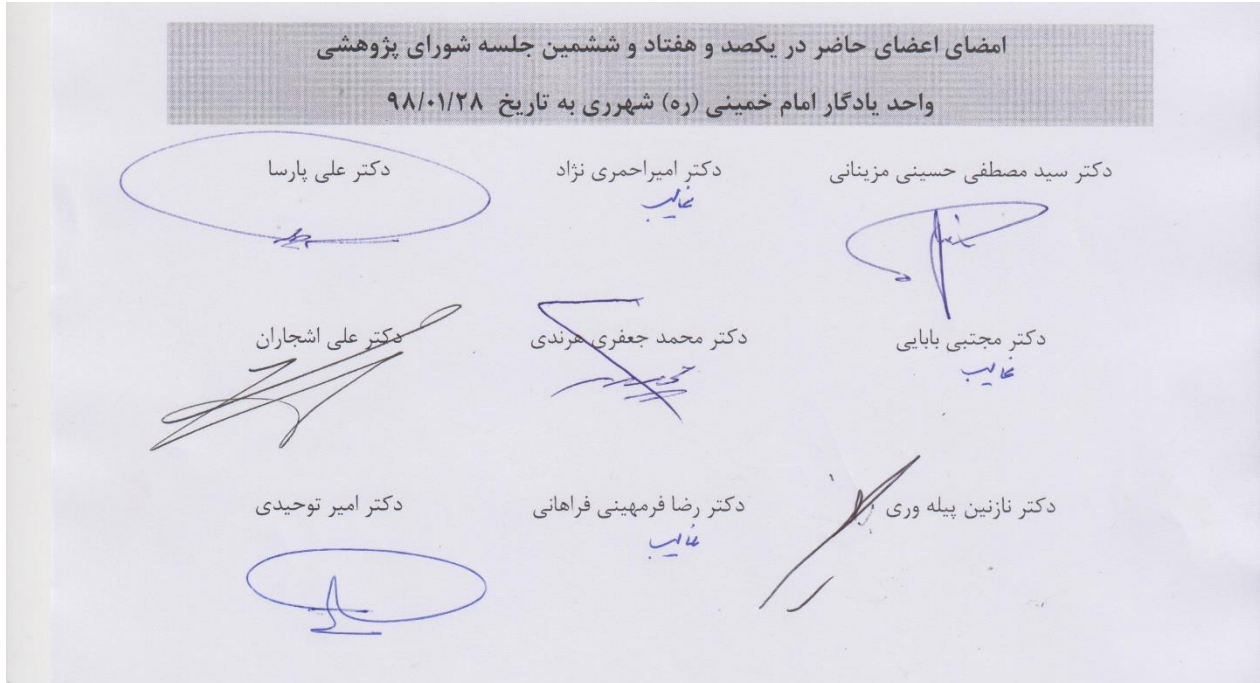 امضای اعضای حاضر در یکصد و هفتاد و ششمین جلسه شورای پژوهشی
واحد یادگار امام خمینی (ره) شهرری به تاریخ ۹۸/۰۱/۲۸
دکتر سید مصطفی حسینی مزینانی دکتر امیراحمری نژاد دکتر علی پارسا
غایب
دکتر مجتبی بابایی دکتر محمد جعفری هرندی دکتر علی اشجاران
غایب
دکتر نازنین پیله وری دکتر رضا فرمهینی فراهانی دکتر امیر توحیدی
غایب